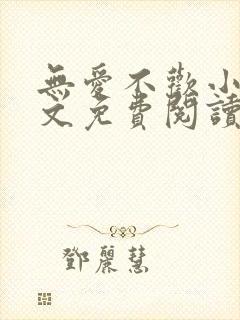 無愛不歡小
文免費閱讀
鄧麗慧